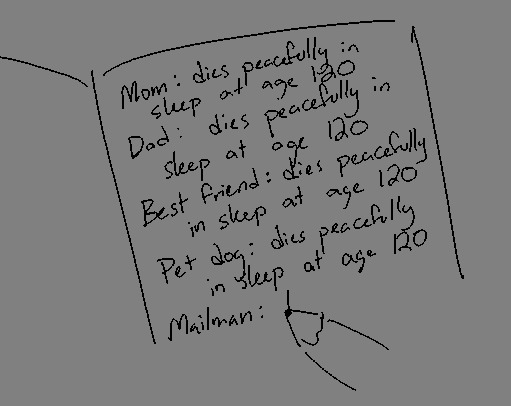 Mom: dies peacefully in
sleep at age 120
Dad: dies peacefully in
sleep at age 120
Best friend: dies peacefully
in sleep at age 120
Pet dog: dies peacefully
in sleep at age 120
Mailman: